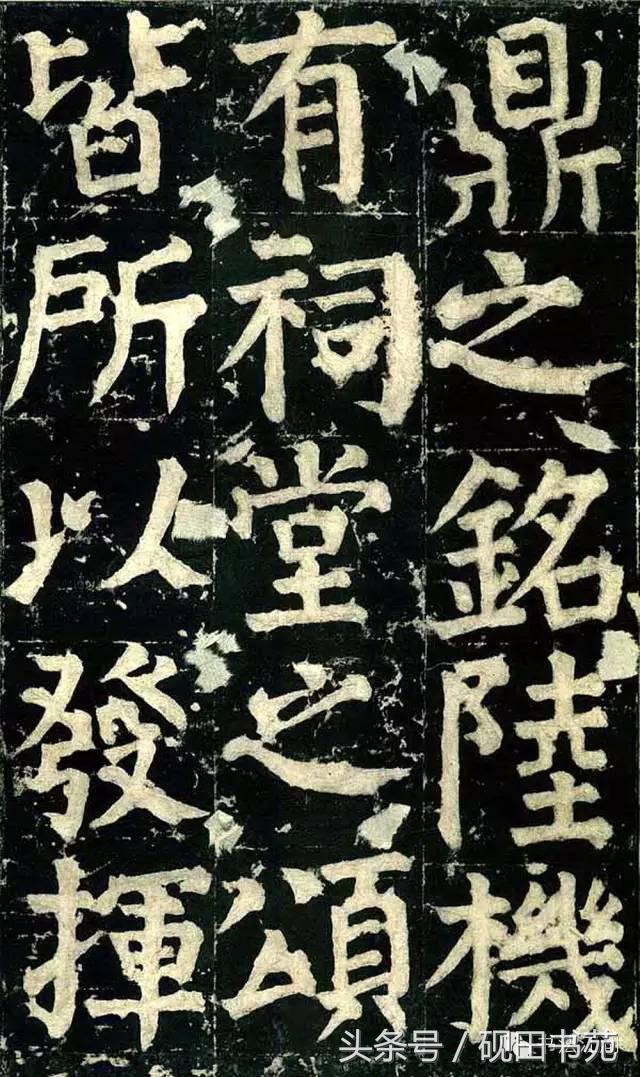 鼎之銘陸機
有祠堂之頌
皆所以發揮
头条号／砚田书苑